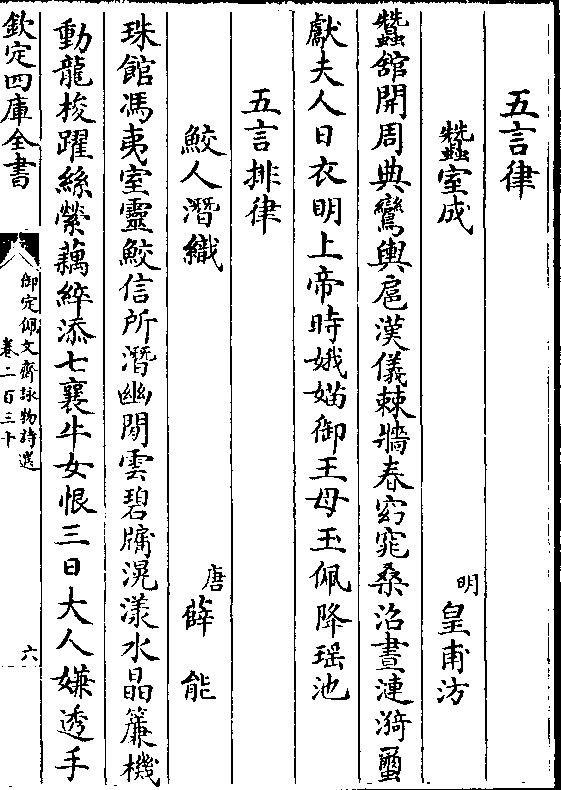 五言律
蠶室成 明 皇甫汸
蠶舘開周典鸞輿扈漢儀棘牆春窈窕桑沼晝漣漪蠒
獻夫人日衣明上帝時娥媌御王母玉佩降瑶池
五言排律
鮫人潛織 唐 薛能
珠館馮夷室靈鮫信所潛幽閒雲碧牖滉漾水晶簾機
動龍梭躍絲縈藕綷添七襄牛女恨三日大人嫌透手
欽定四庫全書
御定佩文齋詠物詩選
卷二百三十
六